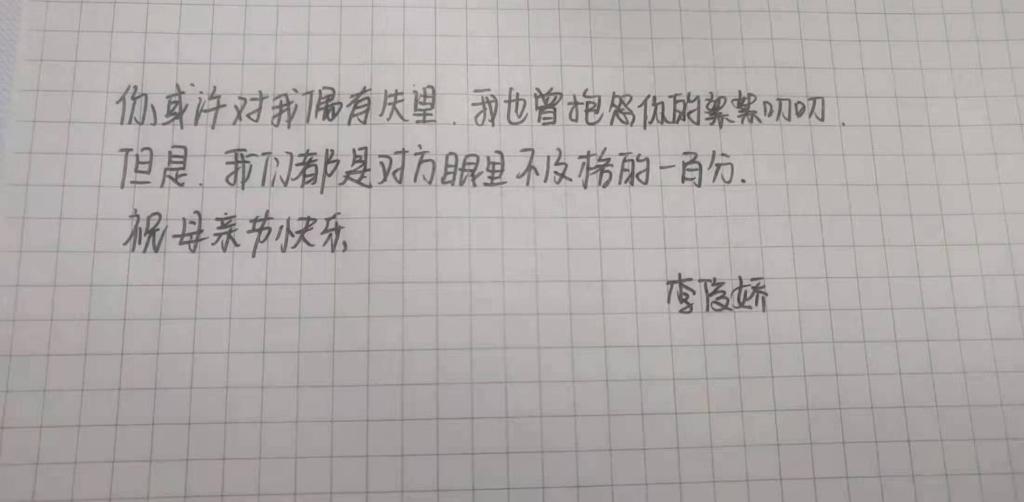 你或许对我偶有失望.我也曾抱怨你的絮絮叨叨.
但是.我们都是对方眼里不及格的一百分.
祝母亲节快乐.
李俊娇